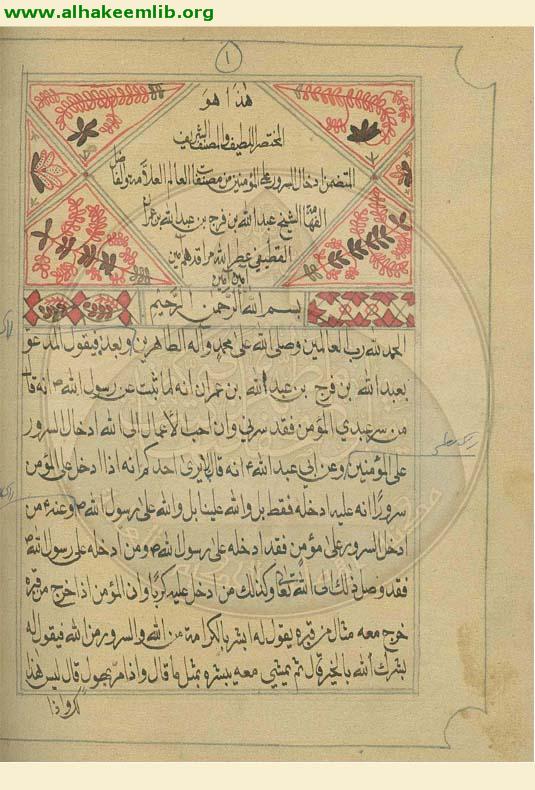 www.alhakeemlib.org
١
هذا هو
المختصر اللطيف والمصنف الشريف
المتضمن ادخال السرور على المؤمنين من مصنفات العالم العلامة والفاضل
الفهامة الشيخ عبد الله بن فرج بن عبد الله بن عمران
القطيفي عطر الله مراقدهم آمين
آمين آمين
بسم الله الرحمن الرحيم
الحمد لله رب العالمين وصلى الله على محمد وآله الطاهرين وبعد فيقول المدعو
بعبد الله بن فرج بن عبد الله بن عمران انه لما ثبت عن رسول الله ص انه قا
من سر عبدي المؤمن فقد سرني وان احب الأعمال الى الله ادخال السرور
على المؤمنين وعن ابي عبد الله ع انه قال لا يرى احدكم انه اذا ادخل على المؤمن
سرورًا انه عليه ادخله فقط بل والله علينا بل والله على رسول الله ص وعنه ع من
ادخل السرور على مؤمن فقد ادخله على رسول الله ص ومن ادخله على رسول الله ص
فقد وصل ذلك الى الله تعا وكذلك من ادخل عليه كربًا وان المؤمن اذا خرج من قبره
خرج معه مثال من قبره يقول له ابشر بالكرامة من الله والسرور من الله فيقول له
بشرك الله بالخير قال ثم يمشي معه يبشره بمثل ما قال واذا مر بهول قال ليس هذا